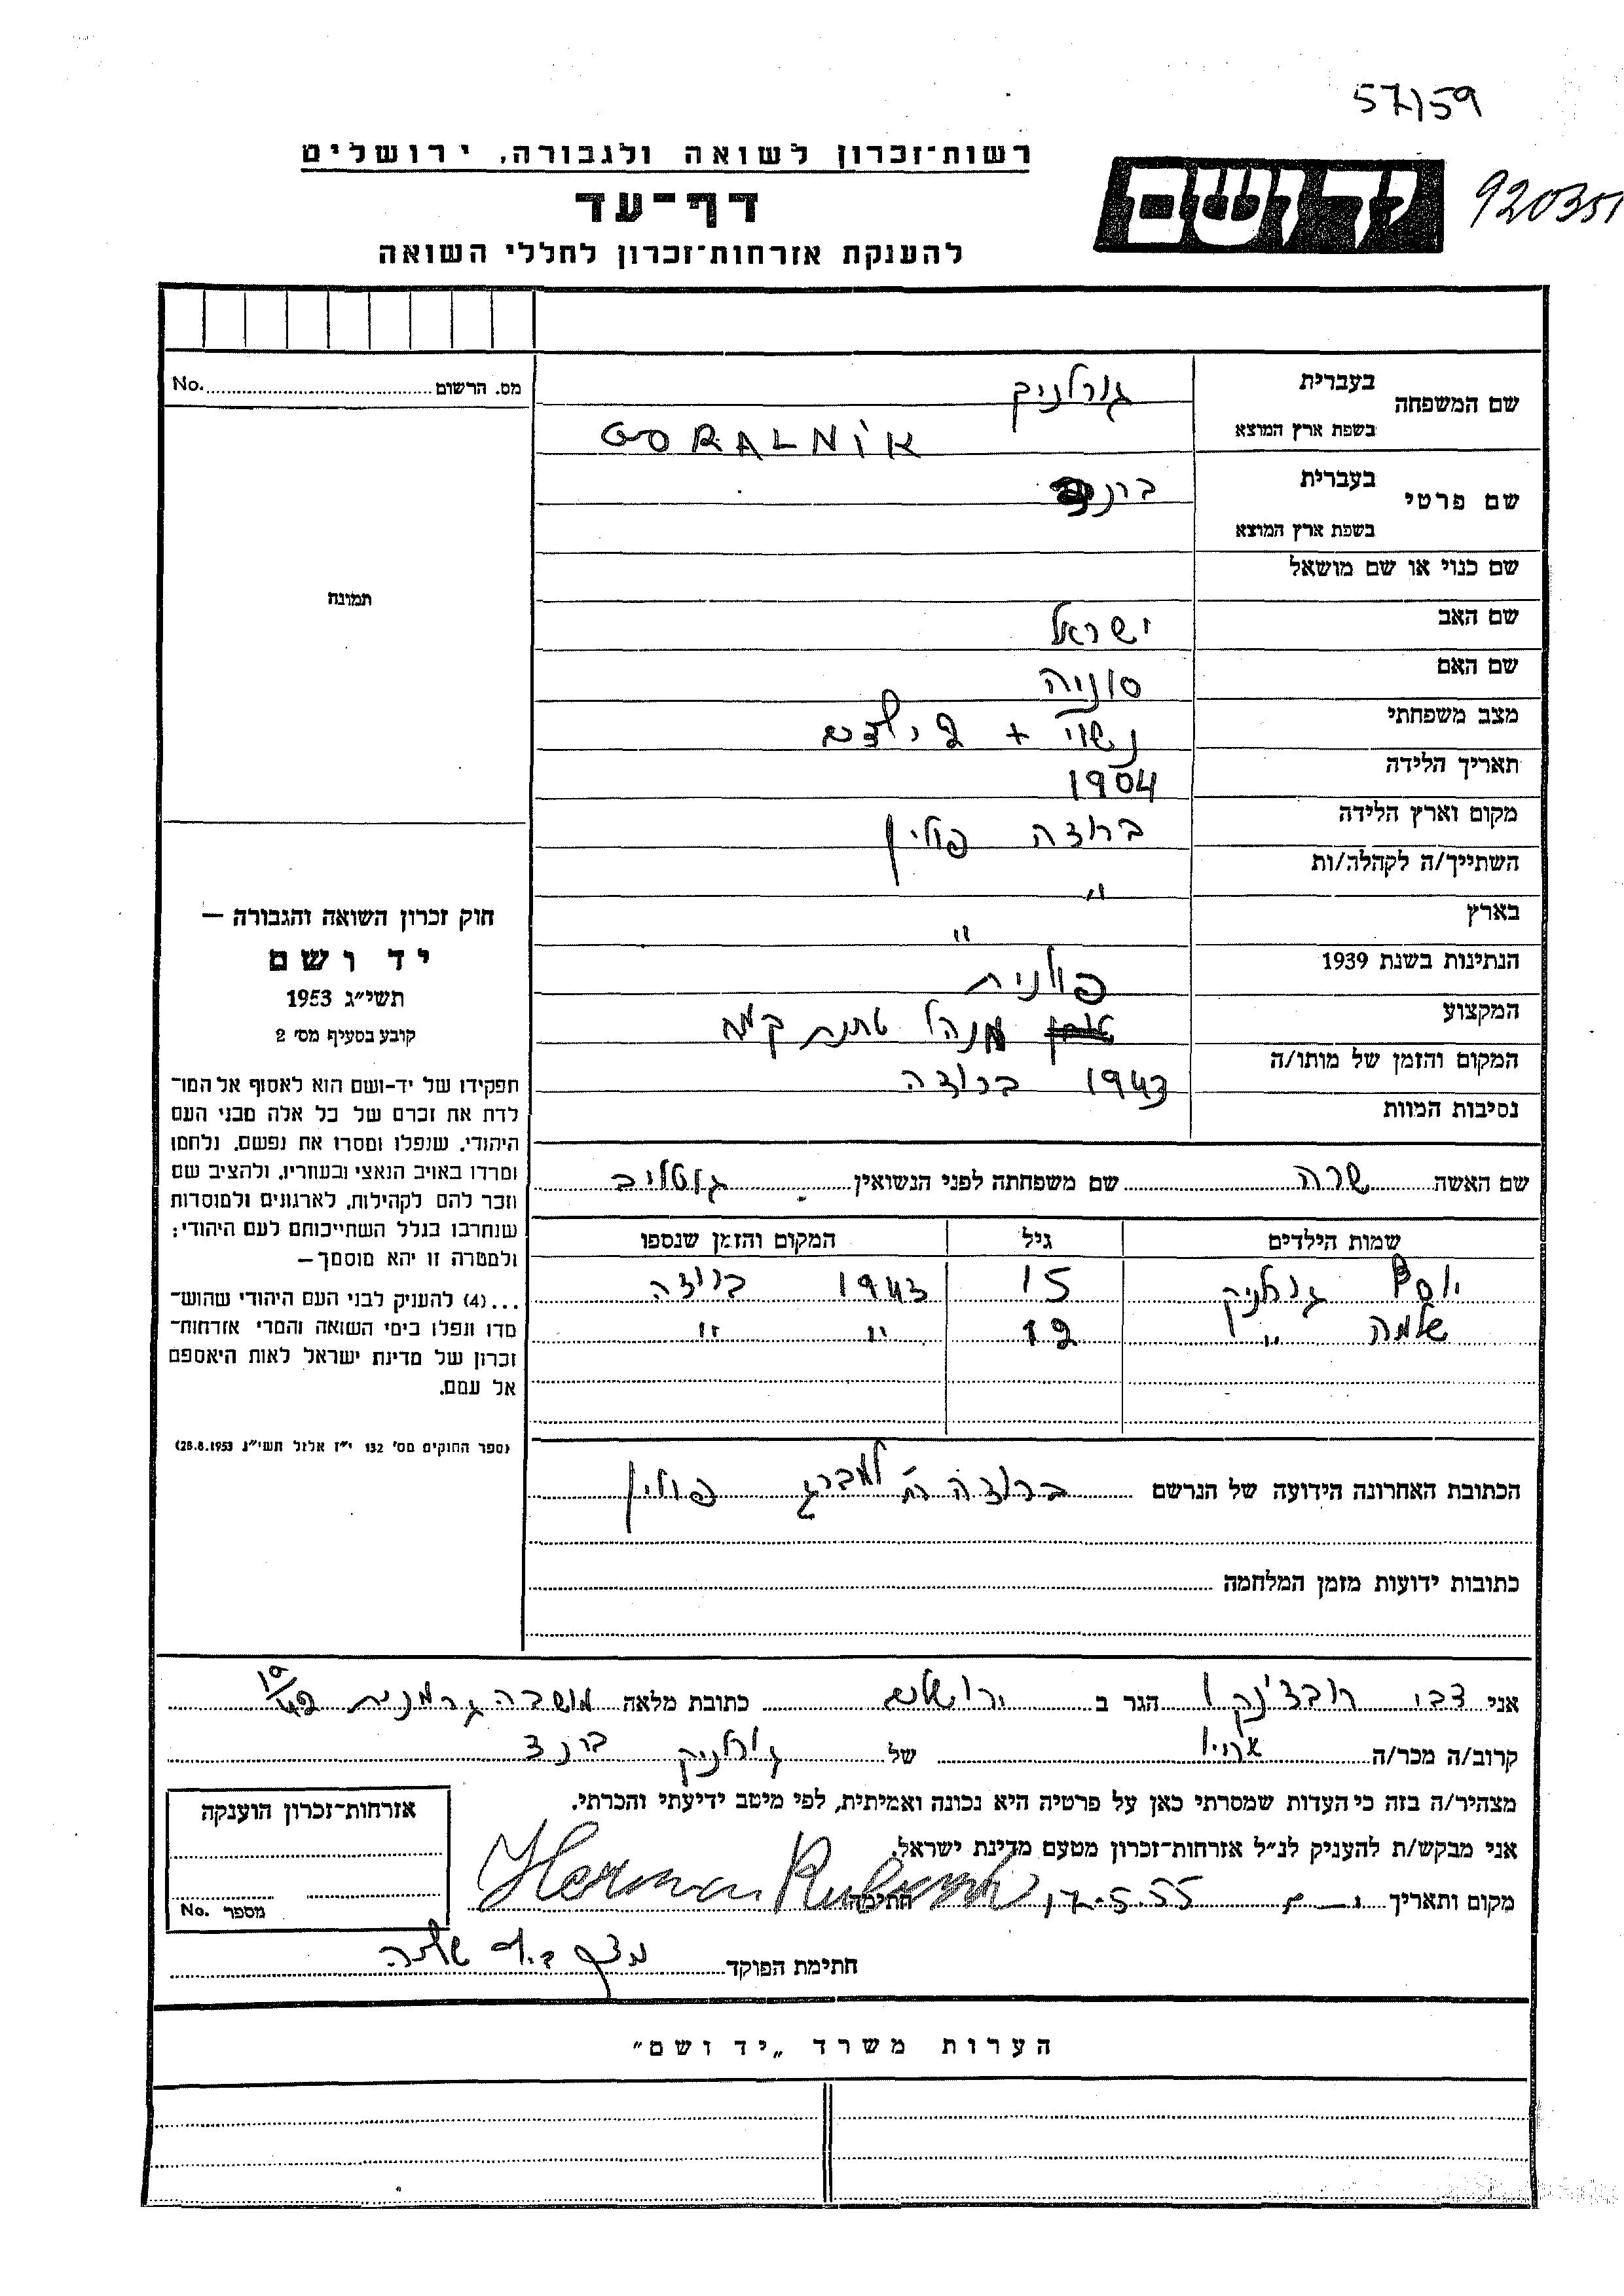 57/159
רשות־זכרון לשואה ולגבורה, ירושלים
יד ושם
920351
דף־עד
להענקת אזרחות־זכרון לחללי השואה
מס. הרשום No.
תמונה
שם המשפחה בעברית גורלניק
בשפת ארץ המוצא GORALNIK
שם פרטי בעברית
בשפת ארץ המוצא
שם כנוי או שם מושאל
שם האב ישראל
שם האם סוניה
מצב משפחתי נשוי + 2 ילדים
תאריך הלידה 1904
מקום וארץ הלידה ברודה פולין
השתייך/ה לקהלה/ות "
בארץ "
הנתינות בשנת 1939 פולנית
המקצוע מנהל טחנת קמח
המקום והזמן של מותו/ה 1943 ברודה
נסיבות המוות
שם האשה שרה שם משפחתה לפני הנשואין גוטליב
שמות הילדים גיל המקום והזמן שנספו
יוסף גורלניק 15 1943 ברודה
שלמה " 12 " "
הכתובת האחרונה הידועה של הנרשם ברודה למברג פולין
כתובות ידועות מזמן המלחמה
חוק זכרון השואה והגבורה —
יד ושם
תשי״ג 1953
קובע בסעיף מס׳ 2
תפקידו של יד-ושם הוא לאסוף אל המו־
לדת את זכרם של כל אלה מבני העם
היהודי, שנפלו ומסרו את נפשם, נלחמו
ומרדו באויב הנאצי ובעוזריו, ולהציב שם
וזכר להם לקהילות, לארגונים ולמוסדות
שנחרבו בגלל השתייכותם לעם היהודי;
ולמטרה זו יהא מוסמך—
...(4) להעניק לבני העם היהודי שהוש־
מדו ונפלו בימי השואה והמרי אזרחות־
זכרון של מדינת ישראל לאות היאספם
אל עמם.
(ספר החוקים מס׳ 132 י״ז אלול תשי״ג 28.8.1953)
אני צבי הגר ב ירושלים כתובת מלאה מושבה גרמנית
קרוב/ה מכר/ה של גורלניק
מצהיר/ה בזה כי העדות שמסרתי כאן על פרטיה היא נכונה ואמיתית, לפי מיטב ידיעתי והכרתי.
אני מבקש/ת להעניק לנ״ל אזרחות־זכרון מטעם מדינת ישראל.
מקום ותאריך 17.5.55 חתימה Herman
חתימת הפוקד
אזרחות־זכרון הוענקה
מספר No.
הערות משרד „יד ושם״